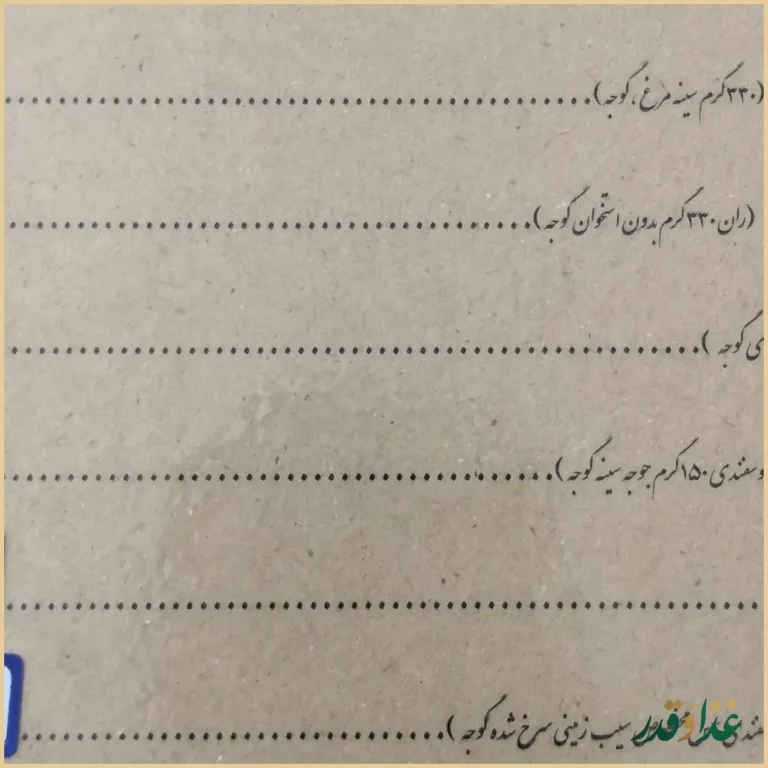 (۳۳۰گرم سینه مرغ، گوجه)
(ران ۳۳۰گرم بدون استخوان گوجه)
ی گوجه )
وسفندی ۱۵۰گرم جوجه سینه گوجه)
سیب زمینی سرخ شده گوجه )
غذا و قدر